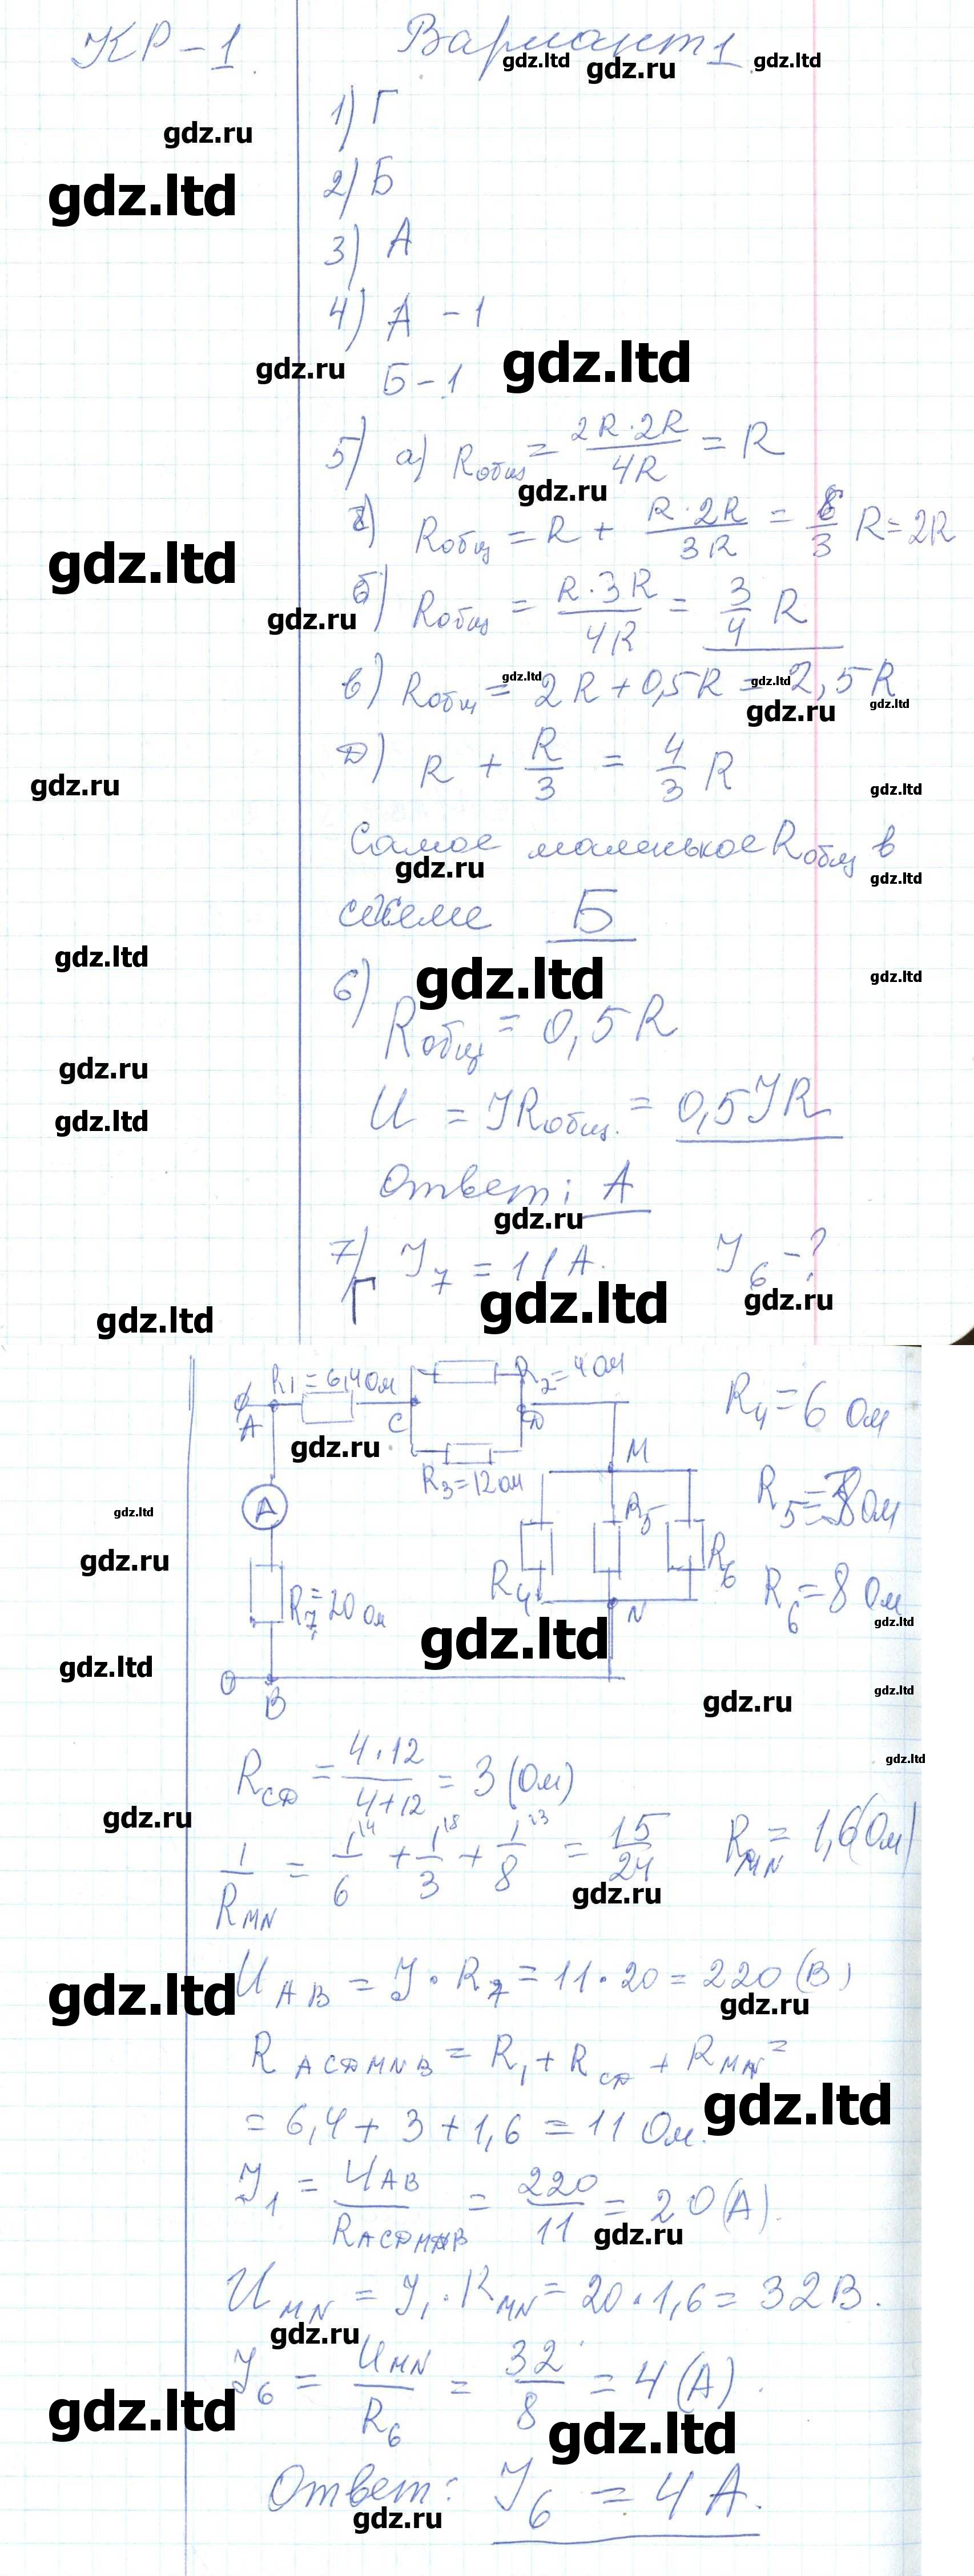 КР-1. Вариант 1.
gdz.ltd gdz.ru gdz.ltd
1) Г
gdz.ru
2) Б
gdz.ltd
3) А
4) А - 1
gdz.ru gdz.ltd
Б - 1
5) а) Rобщ = 2R·2R/4R = R
gdz.ru
г) Rобщ = R + R·2R/3R = 6/3 R = 2R
gdz.ltd
б) Rобщ = R·3R/4R = 3/4 R
gdz.ru
в) Rобщ = 2R + 0,5R = 2,5R
gdz.ltd gdz.ltd gdz.ru gdz.ltd
д) R + R/3 = 4/3 R
gdz.ru gdz.ltd
Самое маленькое Rобщ в
gdz.ru gdz.ltd
схеме Б
gdz.ltd gdz.ltd gdz.ltd
6) Rобщ = 0,5R
gdz.ru
U = JRобщ. = 0,5JR
gdz.ltd
Ответ: А
gdz.ru
7) J7 = 11А. J6 - ?
Г
gdz.ltd gdz.ltd gdz.ru
R1 = 6,4 Ом R2 = 4 Ом R4 = 6 Ом
A C D
gdz.ru M
R3 = 12 Ом R5 = 3 Ом
gdz.ltd A R5
gdz.ru
R4 R6 R6 = 8 Ом
R7 = 20 Ом N
gdz.ltd gdz.ltd
gdz.ltd
B
gdz.ru gdz.ltd
RCD = 4·12/4+12 = 3 (Ом)
gdz.ltd
gdz.ru
1/RMN = 1/6 + 1/3 + 1/8 = 15/24 RMN = 1,6 (Ом)
gdz.ru
UAB = J · R7 = 11 · 20 = 220 (В)
gdz.ltd gdz.ru
RACDMNB = R1 + RCD + RMN =
gdz.ltd
= 6,4 + 3 + 1,6 = 11 Ом.
J1 = UAB/RACDMNB = 220/11 = 20 (А).
gdz.ru
UMN = J1 · RMN = 20 · 1,6 = 32 В.
gdz.ru
J6 = UMN/R6 = 32/8 = 4 (А).
gdz.ltd gdz.ltd
Ответ: J6 = 4 А.
gdz.ru